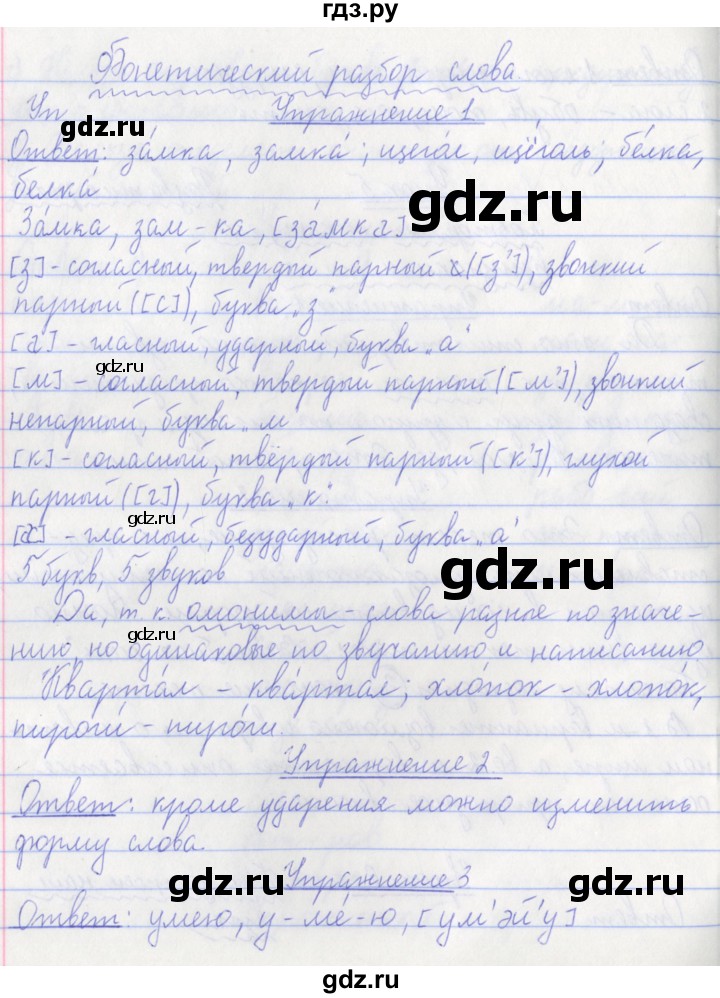 гдз.ру
Фонетический разбор слова.
Уп Упражнение 1
Ответ: за́мка, замка́; щегол, щёголь; бе́лка,
белка́
За́мка, зам-ка, [за́мка]
gdz.ru
[з]-согласный, твердый парный ([з']), звонкий
парный ([с]), буква „з"
[а́] - гласный, ударный, буква „а"
gdz.ru
[м] - согласный, твердый парный ([м']), звонкий
непарный, буква „м
[к]-согласный, твёрдый парный ([к']), глухой
парный ([г]), буква „к"
gdz.ru
[а] - гласный, безударный, буква „а"
5 букв, 5 звуков
gdz.ru
Да, т к омонимы - слова разные по значе-
gdz.ru
нию, но одинаковые по звучанию и написанию
Кварта́л - ква́ртал; хло́пок - хлопо́к,
пироги́ - пиро́ги.
Упражнение 2.
Ответ: кроме ударения можно изменить
форму слова.
gdz.ru Упражнение 3 gdz.ru
Ответ: умею, у-ме́-ю, [ум'эй'у]
gdz.ru